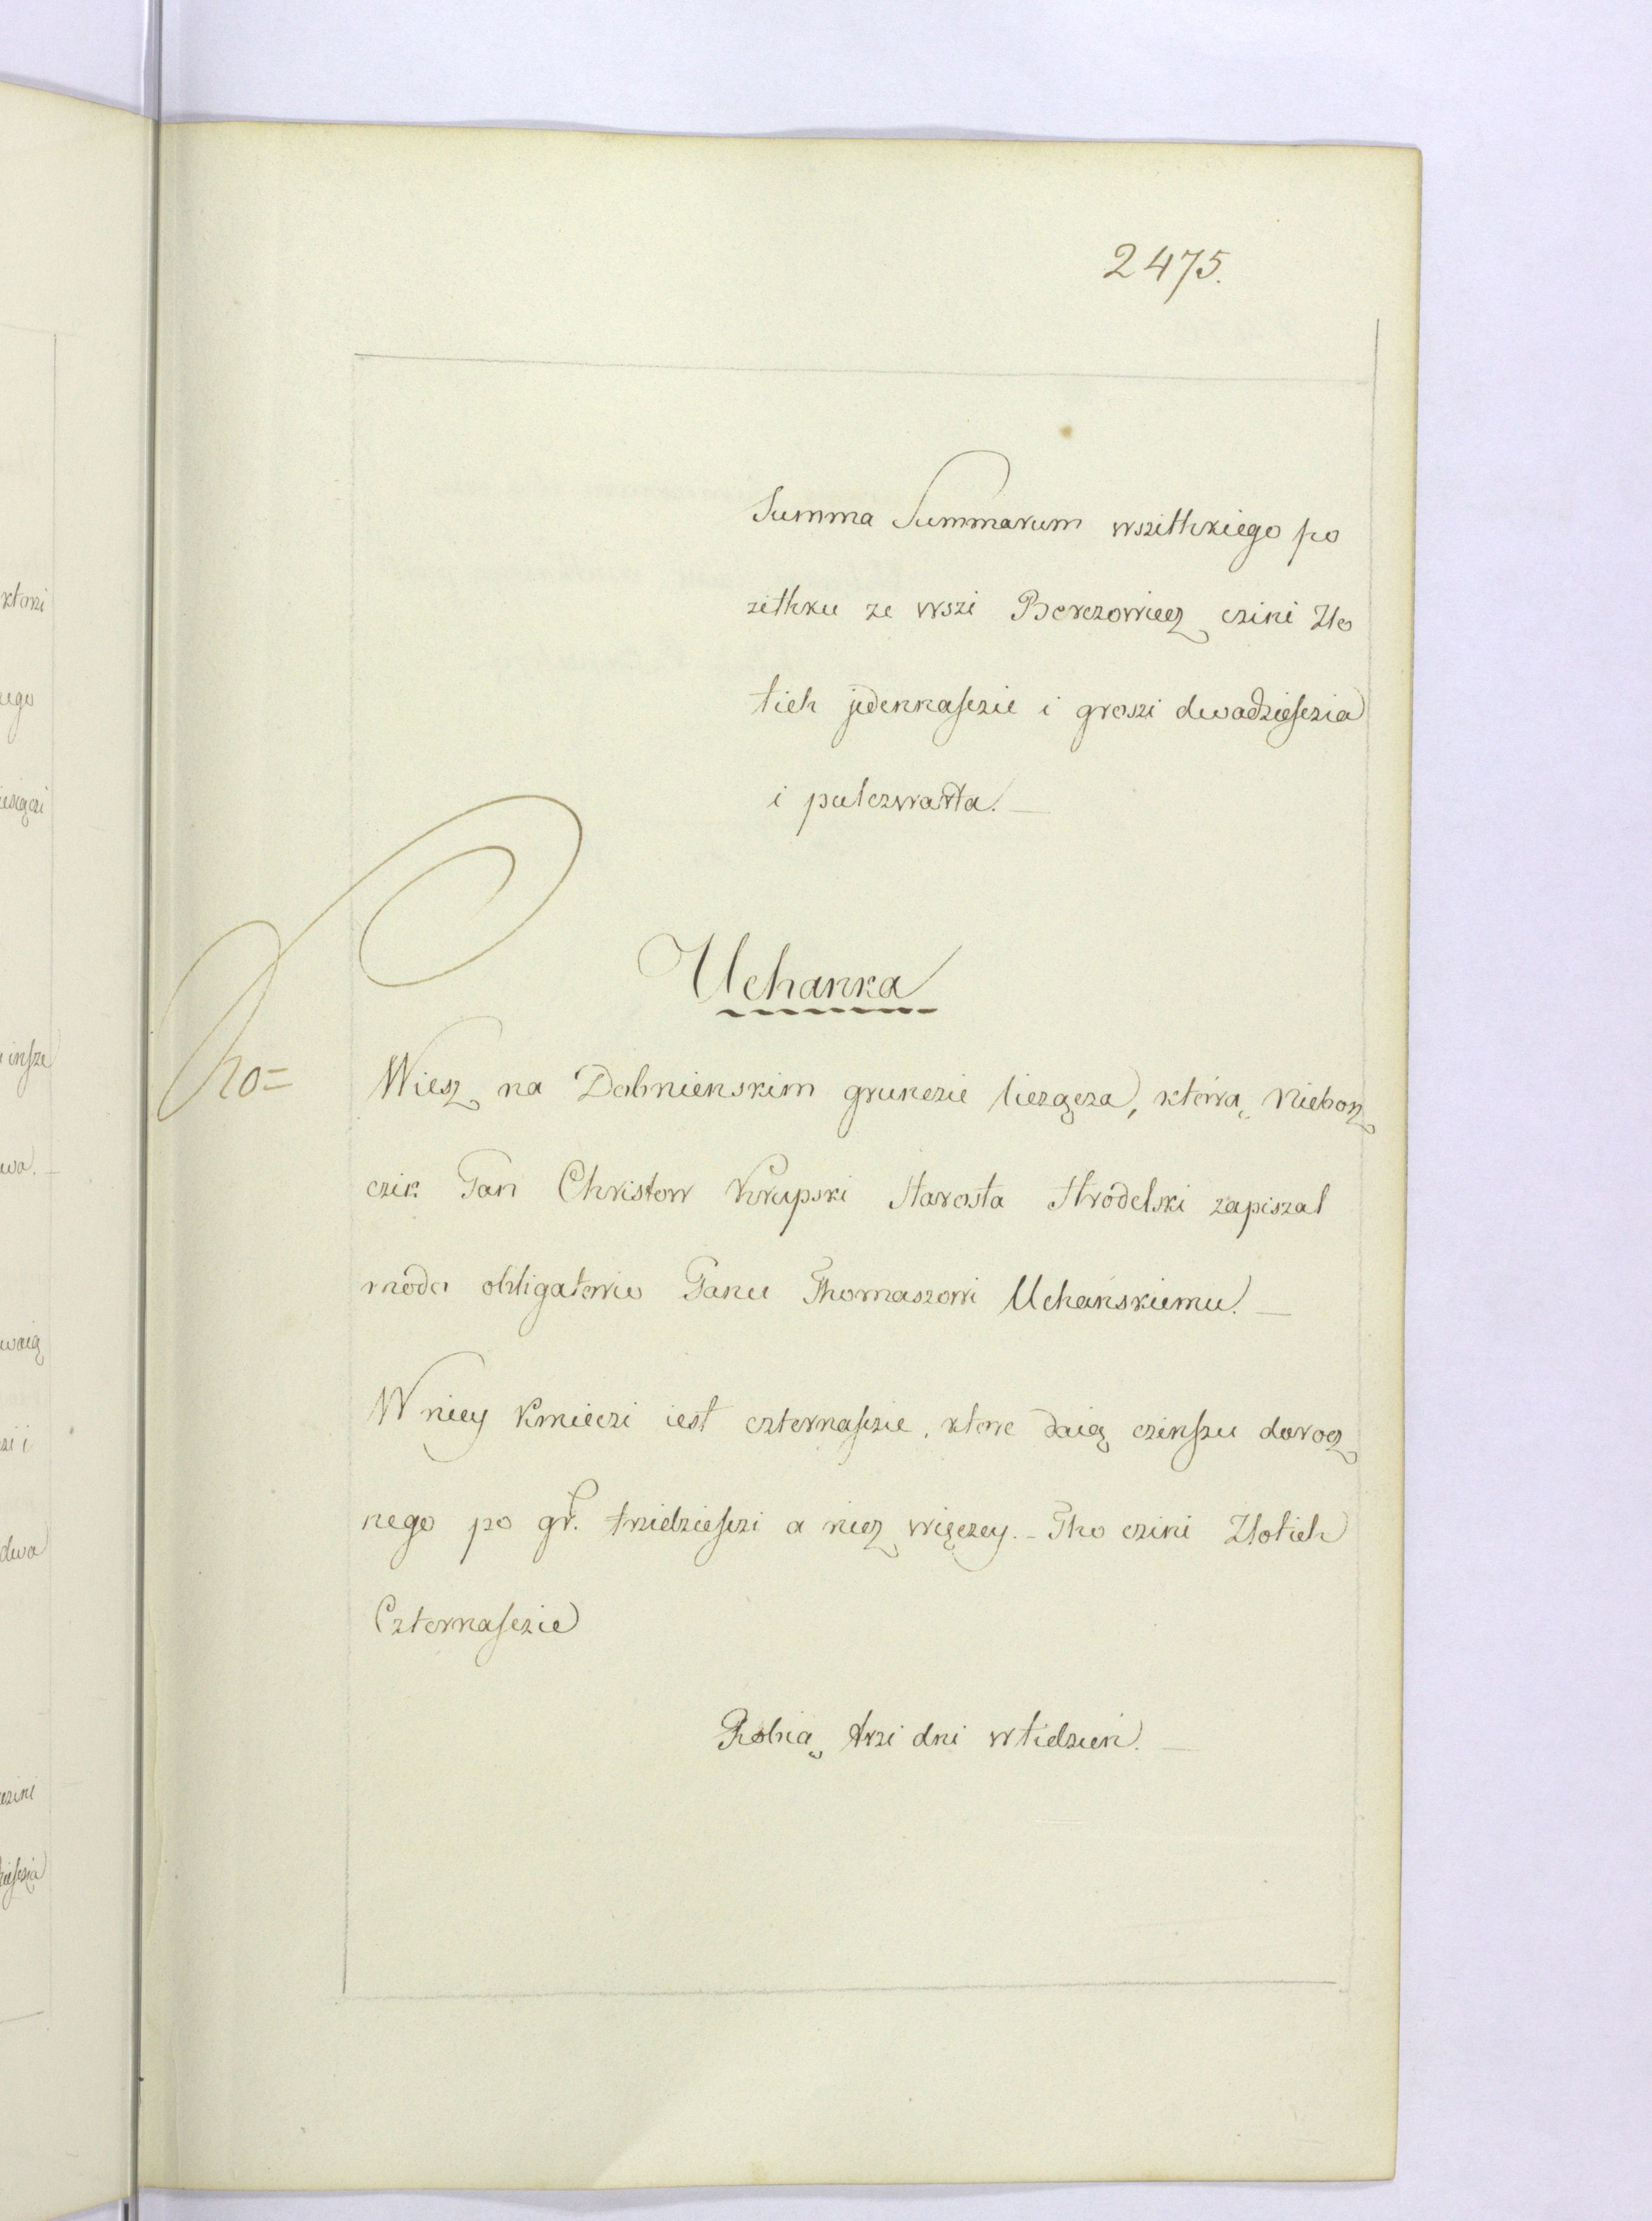 2475.
Summa Summarum wszithkiego po
zithku ze wszi Berezowiecz czini Zło
tich jedennasczie i groszi dwadziesczia
i pulczwarta. —
Uchanka
Wiesz na Dubnienskim grunczie lieząeza, którą Niebosz
czik Pan Christow Krupski Starosta Hródelski zapiszal
modo obligatorio Panu Thomaszowi Uchańskiemu. —
W niey Kmieczi iest czternasczie, ktore daią czinszu dorocz
nego po gr. trzidziesczi a niez więczey. – Tho czini Złotich
Czternasczie
Robią trzi dni w tidzień. —
ktorzi
nego
insze
dwa
czini